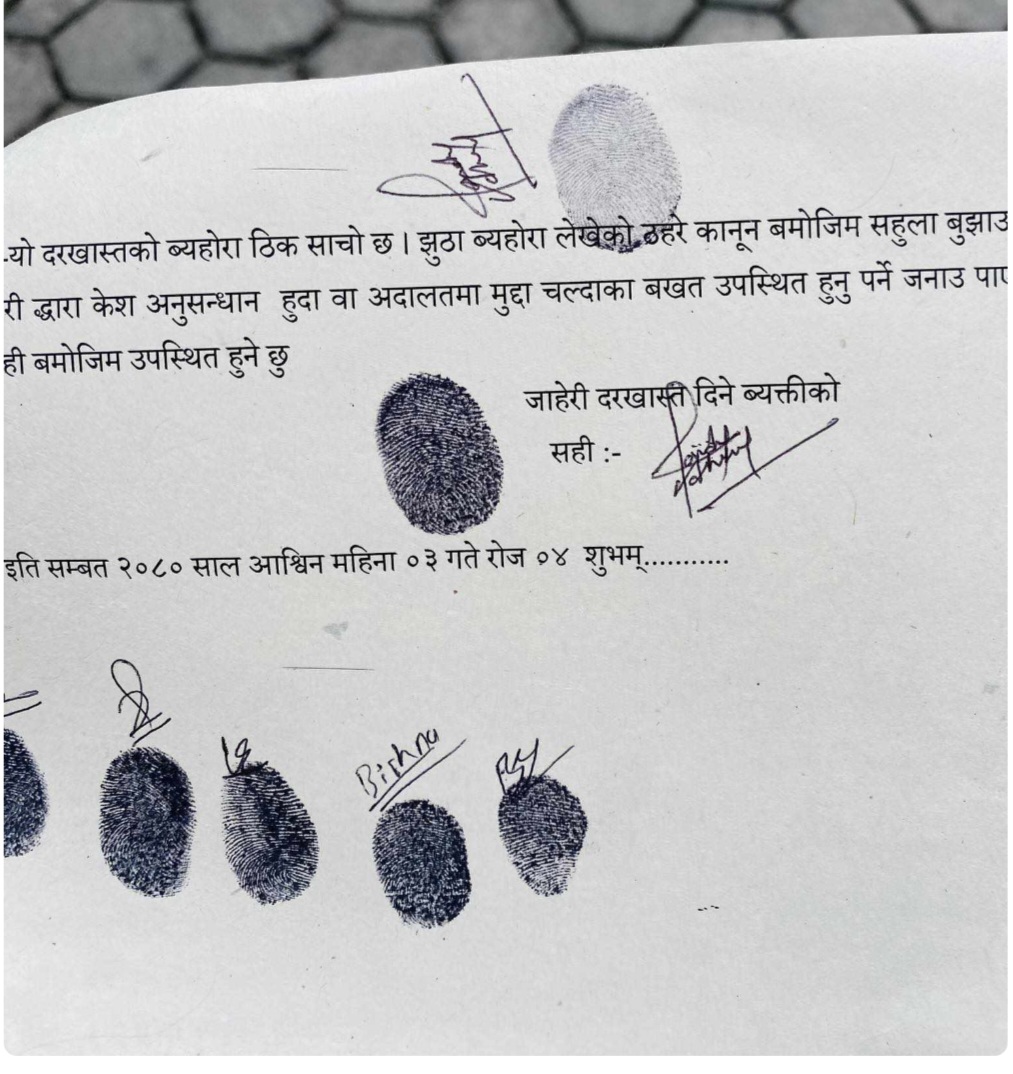 -यो दरखास्तको ब्यहोरा ठिक साचो छ । झुठा ब्यहोरा लेखेको ठहरे कानून बमोजिम सहुला बुझाउ
री द्धारा केश अनुसन्धान हुदा वा अदालतमा मुद्दा चल्दाका बखत उपस्थित हुनु पर्ने जनाउ पाए
ही बमोजिम उपस्थित हुने छु
जाहेरी दरखास्त दिने ब्यक्तीको
सही :-
इति सम्बत २०८० साल आश्विन महिना ०३ गते रोज ०४ शुभम्...........
Bishnu